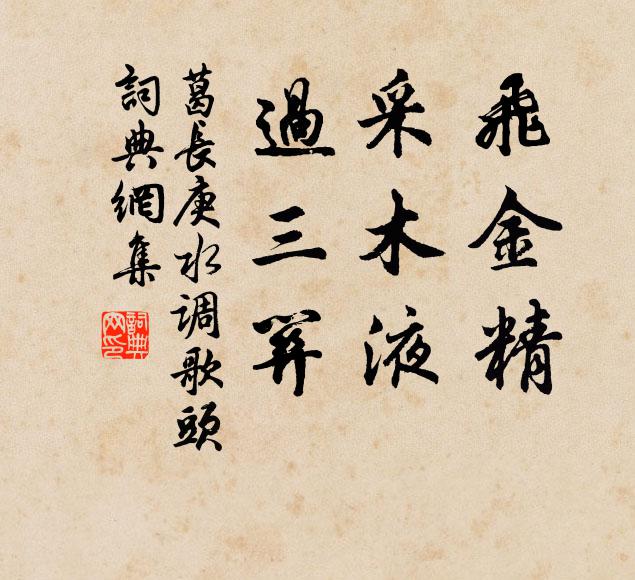 飛金精
采木液
過三關
葛長庚水调歌頭
詞典網集
詞典网印